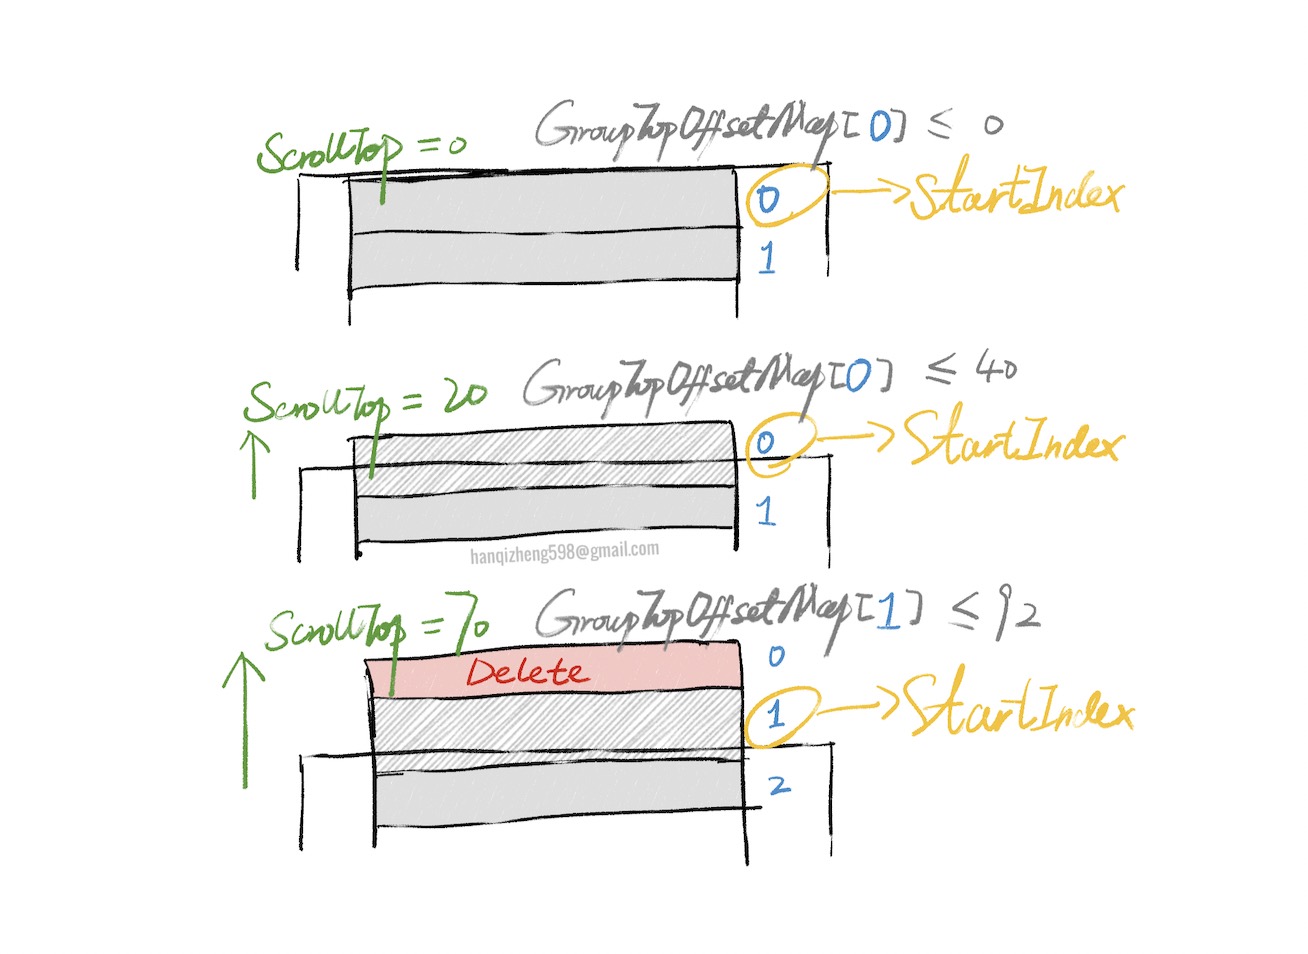 ScrollTop = 0 GroupTopOffsetMap[0] ≤ 0
0 → StartIndex
1
ScrollTop = 20 GroupTopOffsetMap[0] ≤ 40
0 → StartIndex
1
hanqizheng598@gmail.com
ScrollTop = 70 GroupTopOffsetMap[1] ≤ 92
Delete 0
1 → StartIndex
2